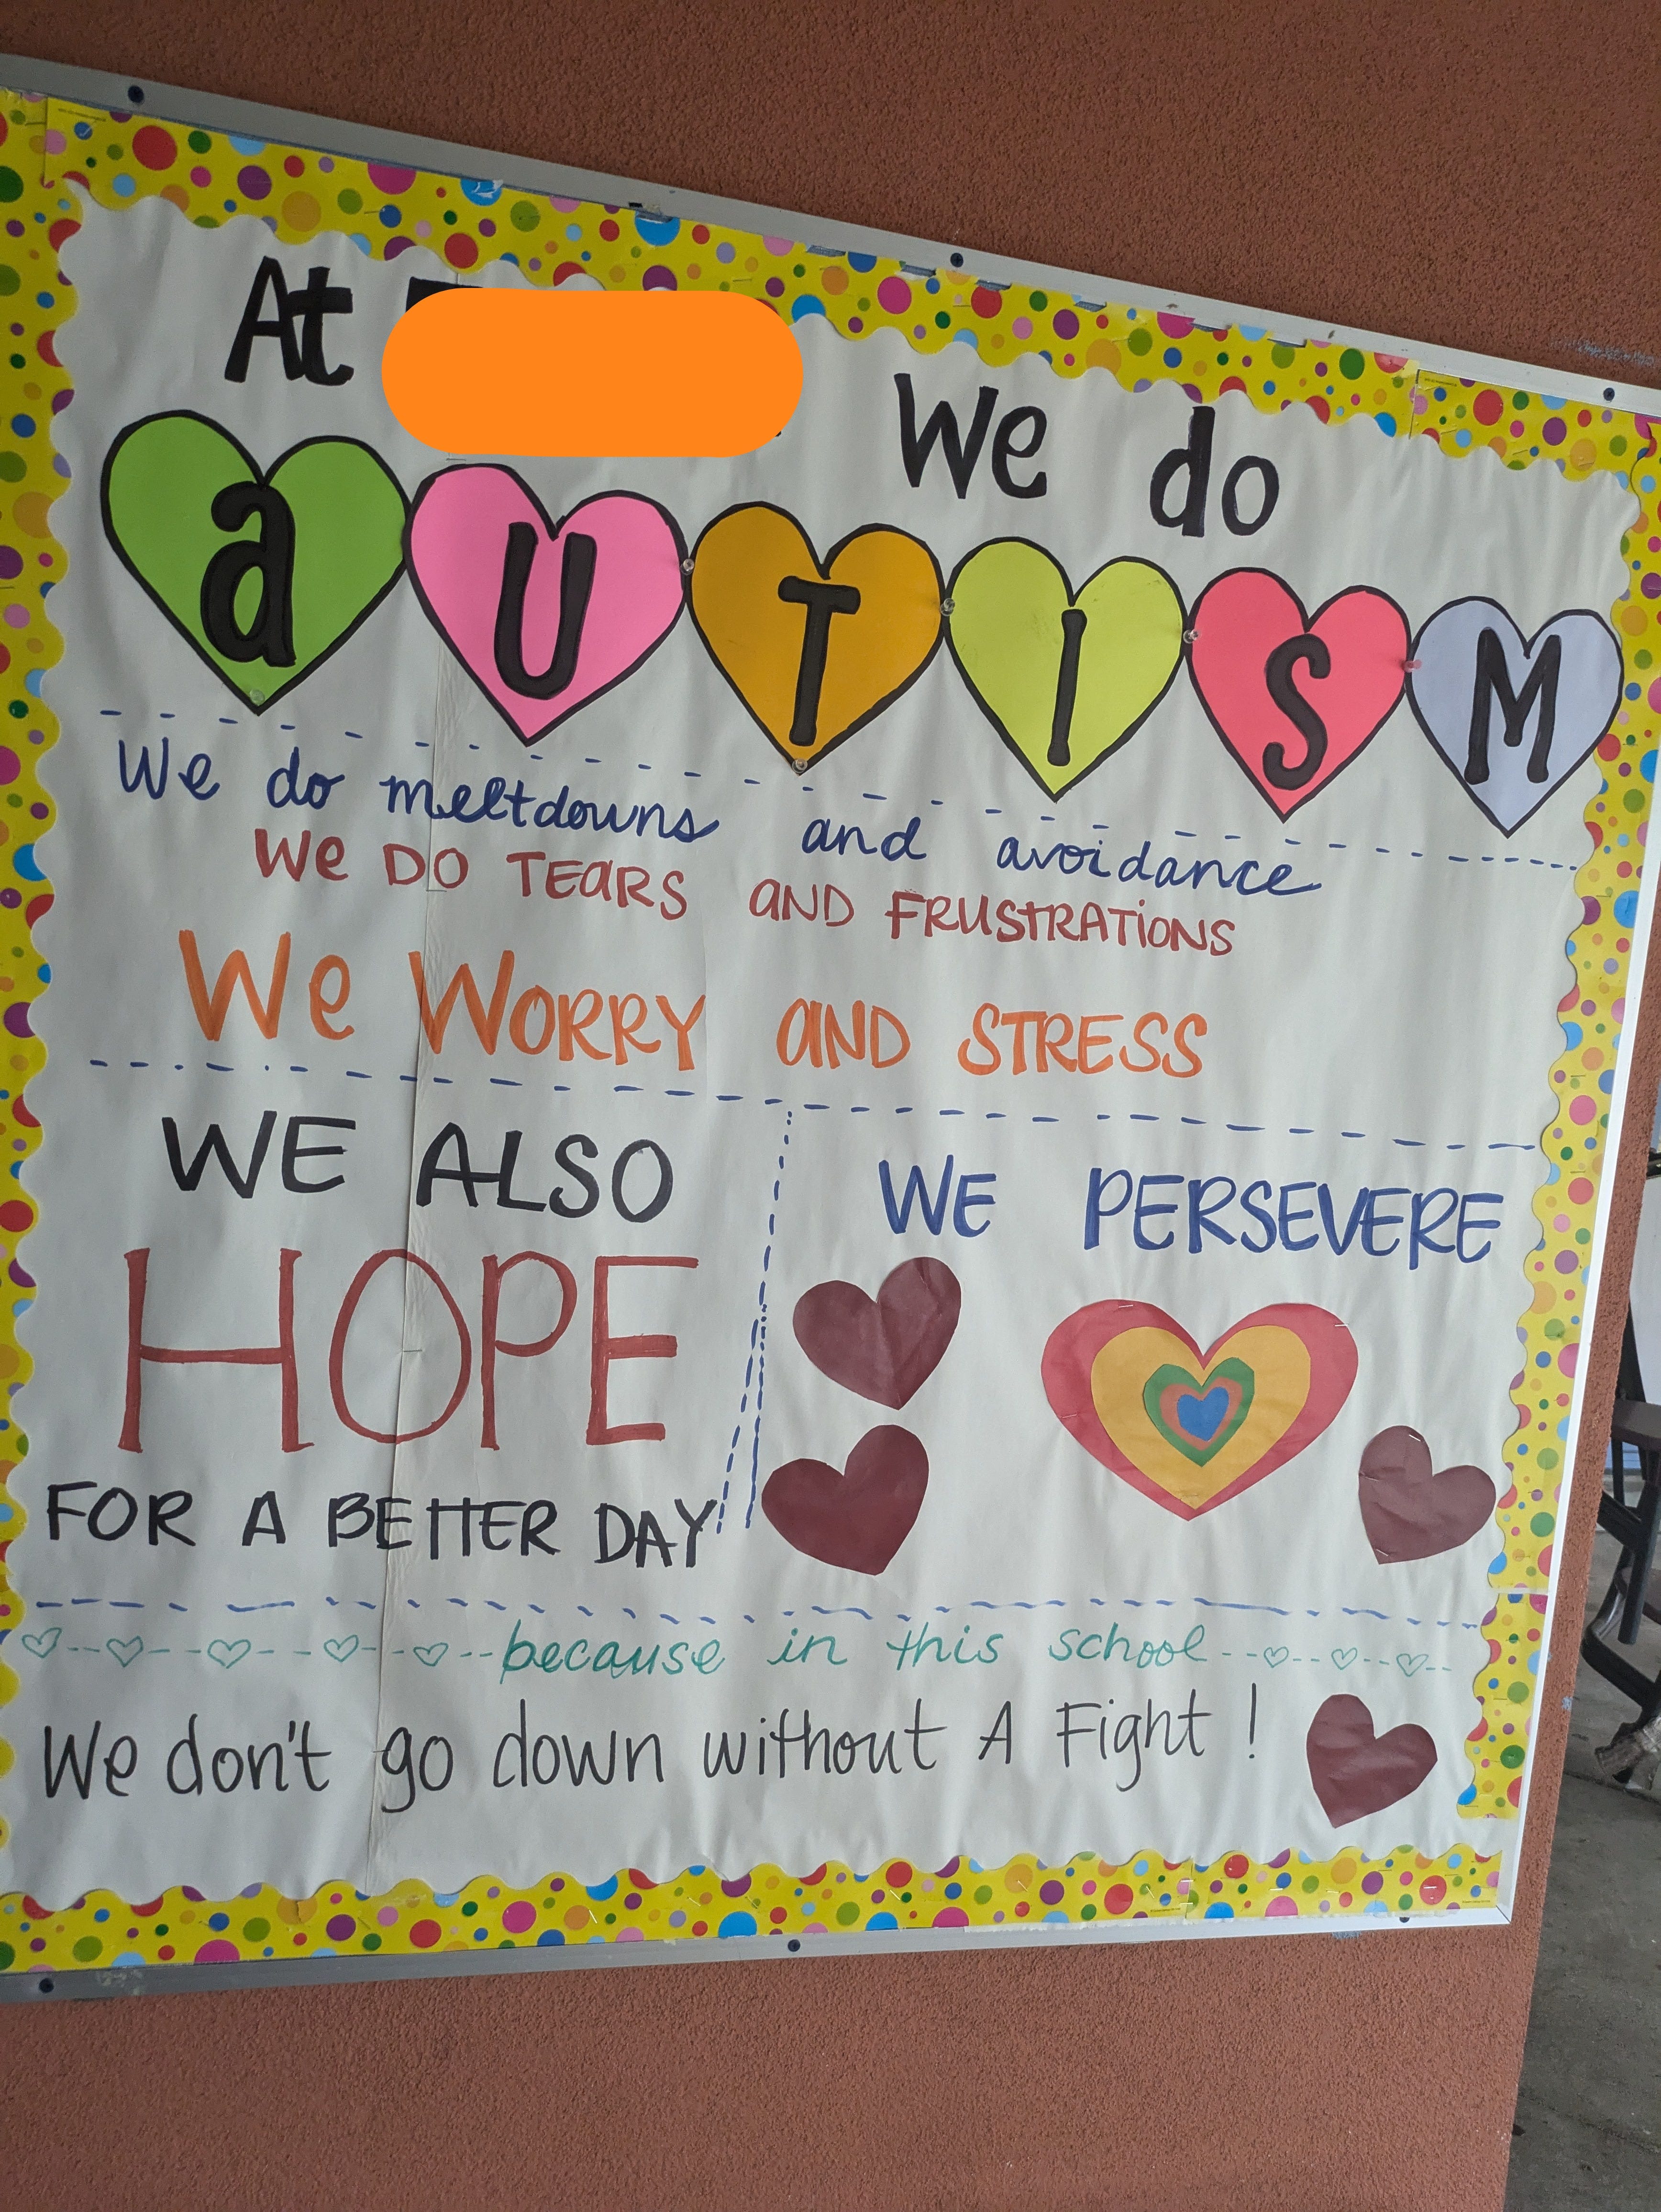 At We do
aUTISM
We do meltdowns and avoidance
We DO TEaRS aND FRUSTRATiONS
We WORRY aND STRESS
WE ALSO
HOPE
FOR A BETTER DAY
WE PERSEVERE
because in this school
We don't go down without A Fight !